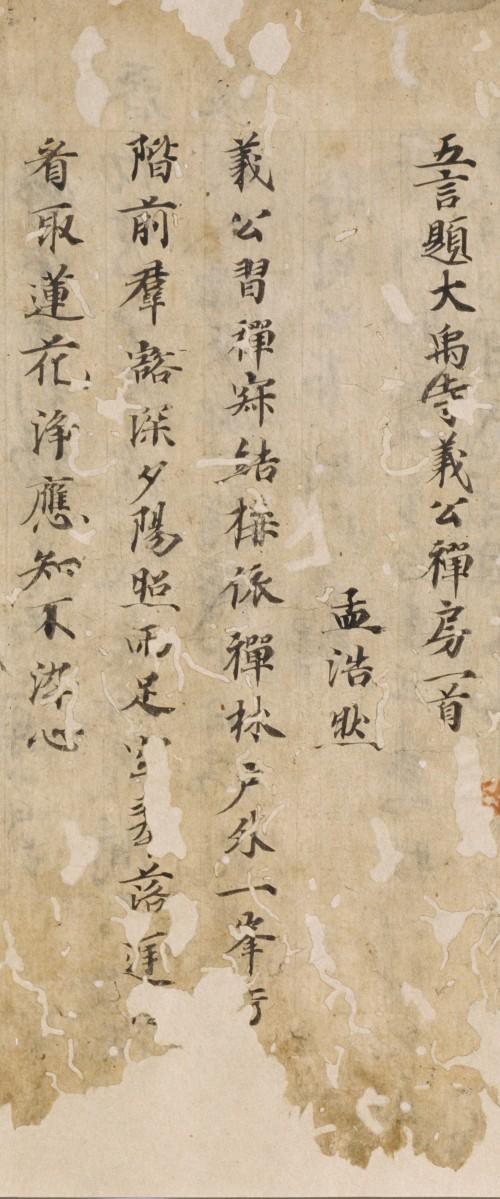 五言題大禹寺義公禪房一首
孟浩然
義公習禪寂結構依禪林戶外一峯
階前羣豁深夕陽照雨足落庭
看取蓮花淨應知不染心